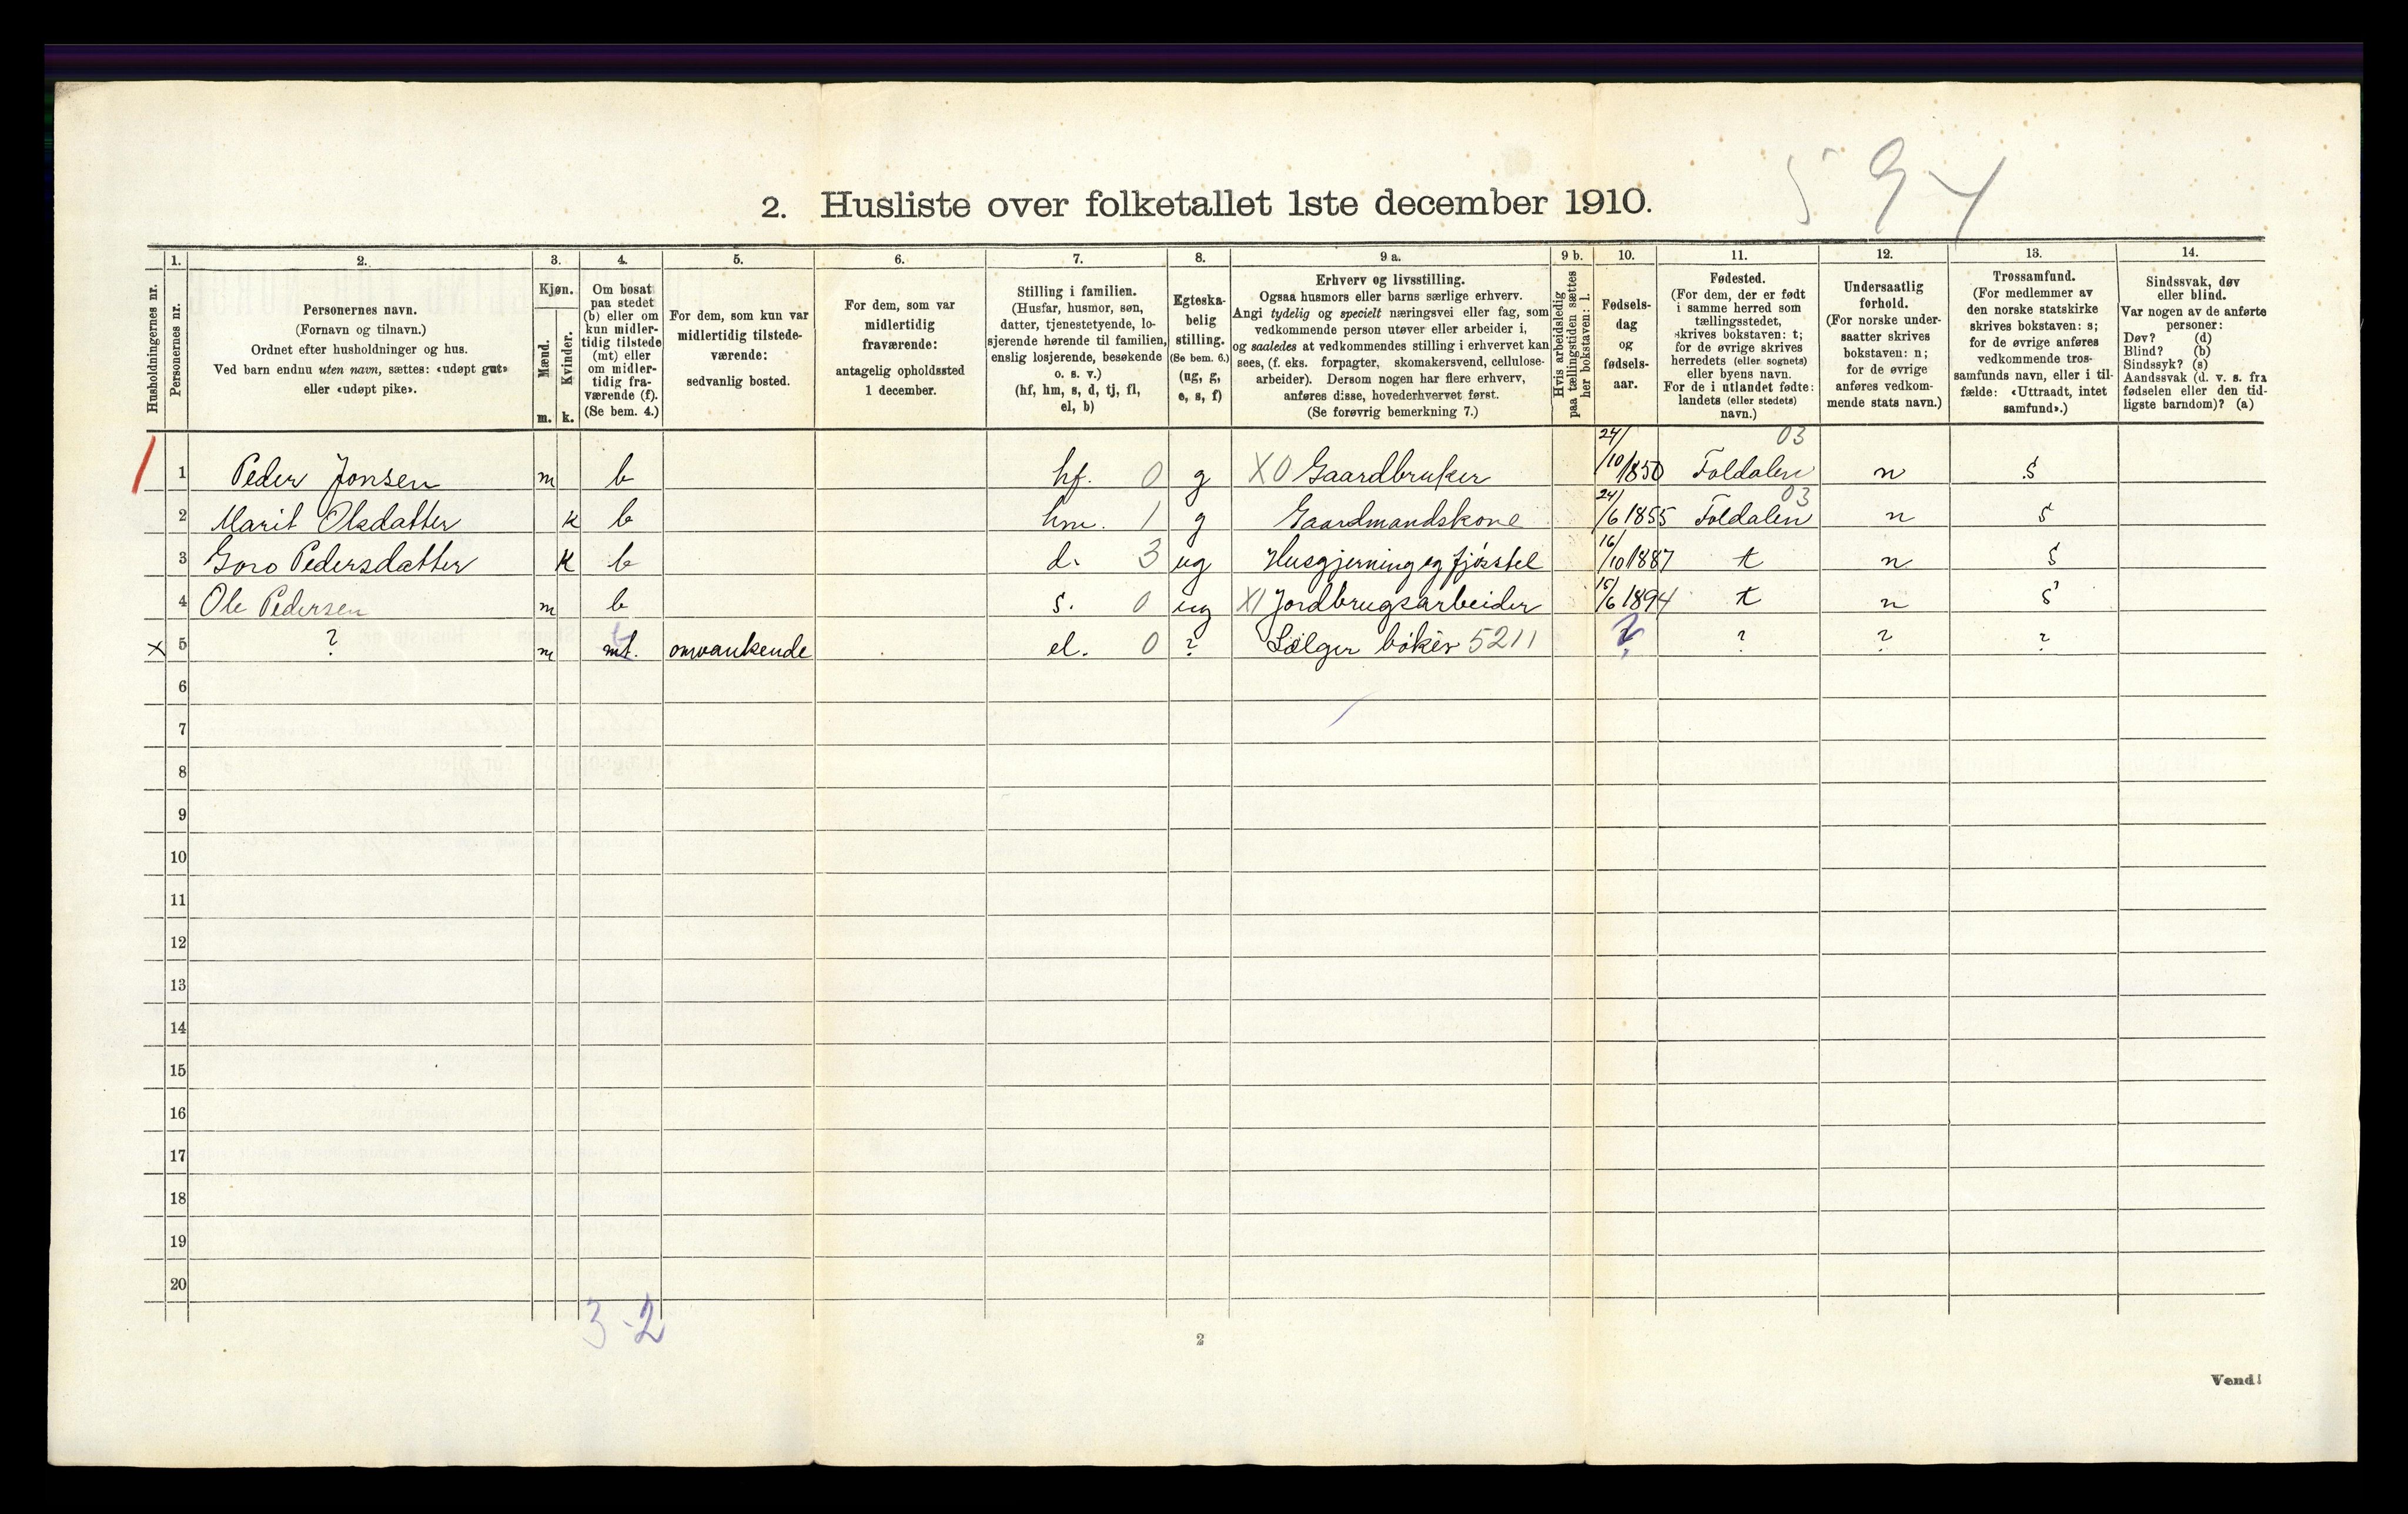 594
2. Husliste over folketallet 1ste december 1910.
Husholdningernes nr.
1.
Personernes nr.
2.
Personernes navn.
(Fornavn og tilnavn.)
Ordnet efter husholdninger og hus.
Ved barn endnu uten navn, sættes: «udøpt gut»
eller «udøpt pike».
3.
Kjøn.
Mænd.
Kvinder.
m. k.
4.
Om bosat
paa stedet
(b) eller om
kun midler-
tidig tilstede
(mt) eller
om midler-
tidig fra-
værende (f).
(Se bem. 4.)
5.
For dem, som kun var
midlertidig tilstede-
værende:
sedvanlig bosted.
6.
For dem, som var
midlertidig
fraværende:
antagelig opholdssted
1 december.
7.
Stilling i familien.
(Husfar, husmor, søn,
datter, tjenestetyende, lo-
sjerende hørende til familien,
enslig losjerende, besøkende
o. s. v.)
(hf, hm, s, d, tj, fl,
el, b)
8.
Egteska-
belig
stilling.
(Se bem. 6.)
(ug, g,
e, s, f)
9 a.
Erhverv og livsstilling.
Ogsaa husmors eller barns særlige erhverv.
Angi tydelig og specielt næringsvei eller fag, som
vedkommende person utøver eller arbeider i,
og saaledes at vedkommendes stilling i erhvervet kan
sees, (f. eks. forpagter, skomakersvend, cellulose-
arbeider). Dersom nogen har flere erhverv,
anføres disse, hovederhvervet først.
(Se forøvrig bemerkning 7.)
9 b.
Hvis arbeidsledig
paa tællingstiden sættes
her bokstaven: l.
10.
Fødsels-
dag
og
fødsels-
aar.
11.
Fødested.
(For dem, der er født
i samme herred som
tællingsstedet,
skrives bokstaven: t;
for de øvrige skrives
herredets (eller sognets)
eller byens navn.
For de i utlandet fødte:
landets (eller stedets)
navn.)
12.
Undersaatlig
forhold.
(For norske under-
saatter skrives
bokstaven: n;
for de øvrige
anføres vedkom-
mende stats navn.)
13.
Trossamfund.
(For medlemmer av
den norske statskirke
skrives bokstaven: s;
for de øvrige anføres
vedkommende tros-
samfunds navn, eller i til-
fælde: «Uttraadt, intet
samfund».)
14.
Sindssvak, døv
eller blind.
Var nogen av de anførte
personer:
Døv? (d)
Blind? (b)
Sindssyk? (s)
Aandssvak (d. v. s. fra
fødselen eller den tid-
ligste barndom)? (a)
1 Peder Jonsen m b hf. 0 g X0 Gaardbruker 24/10 1850 Foldalen 03 n s
2 Marit Olsdatter k b hm. 1 g Gaardmandskone 24/6 1855 Foldalen 03 n s
3 Goro Pedersdatter k b d. 3 ug Husgjerning og fjösstel 16/10 1887 t n s
4 Ole Pedersen m b s. 0 ug X1 Jordbrugsarbeider 15/6 1894 t n s
x 5 ? m mt. omvankende el. 0 ? Sælger böker 5211 ? ? ? ?
6
7
8
9
10
11
12
13
14
15
16
17
18
19
20
3-2
2
Vend!